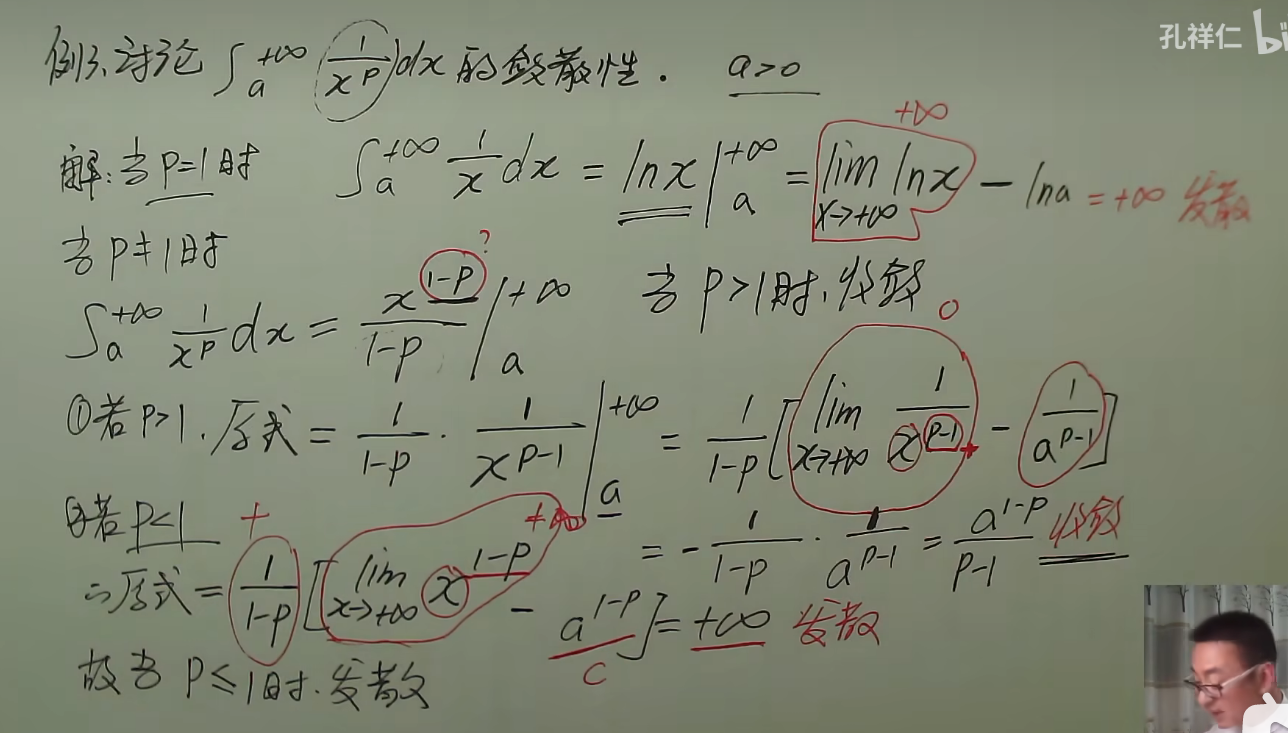 孔祥仁 bi
例3.讨论 ∫_a^{+∞} 1/x^p dx 的敛散性. a>0
解:当 p=1 时 ∫_a^{+∞} 1/x dx = lnx |_a^{+∞} = lim_{x→+∞} lnx - lna = +∞ 发散
+∞
当 p≠1 时
?
∫_a^{+∞} 1/x^p dx = x^{1-p}/(1-p) |_a^{+∞} 当 p>1时,收敛
0
①若 p>1. 原式 = 1/(1-p) · 1/x^{p-1} |_a^{+∞} = 1/(1-p) [lim_{x→+∞} 1/x^{p-1} - 1/a^{p-1}]
+
= - 1/(1-p) · 1/a^{p-1} = a^{1-p}/(p-1) 收敛
②若 p<1 + +∞
原式 = 1/(1-p) [lim_{x→+∞} x^{1-p} - a^{1-p}] = +∞ 发散
c
故当 p≤1时.发散